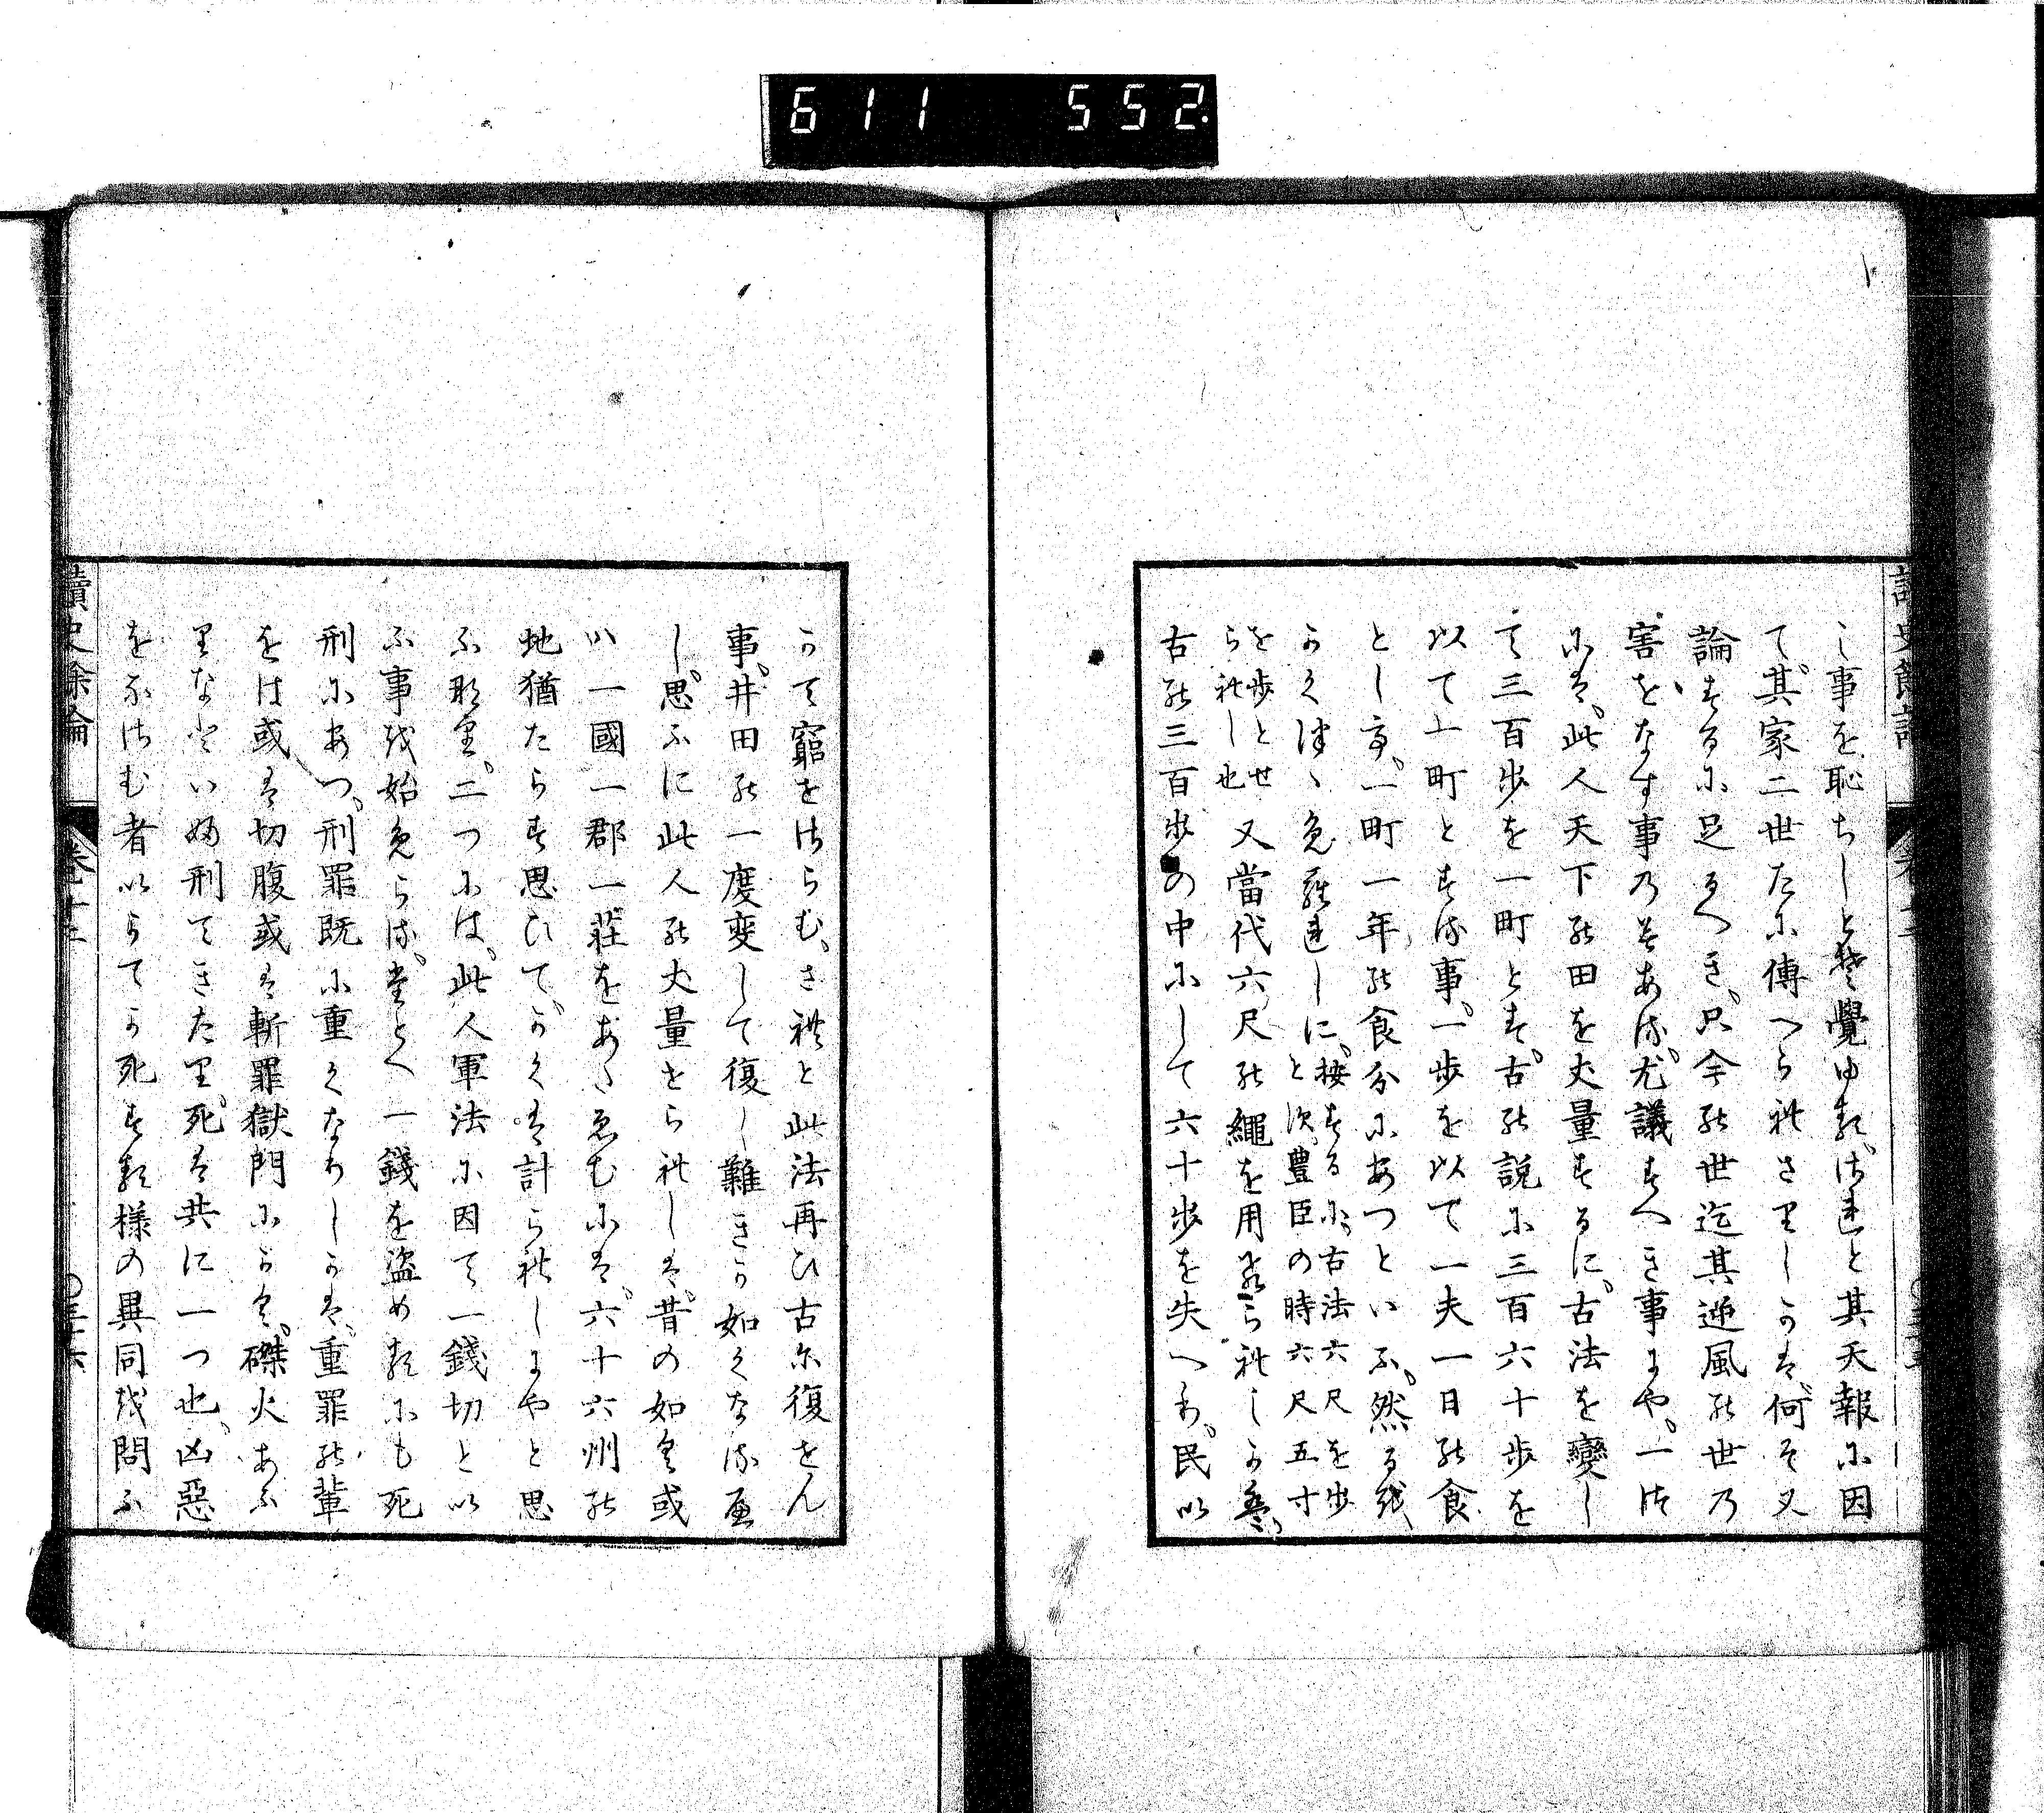 611 552.
し事を恥ちしとそ覺ゆる、され と其天報に因
て、其家二世たに傳へられさりしかは、何そ又
論するに足るへき、只今の世迄其遺風の世の
害をなす事のみある、尤議すへき事にや、一つ
には、此人天下の田を丈量するに、古法を變し
て三百歩を一町とす、古の説に三百六十歩を
以て一町とする事、一歩を以て一夫一日の食
とし、一町一年の食分にあつといふ、然るを、
かくはつゝめられしに、按するに、古法六尺を歩
とす、豊臣の時六尺五寸
を歩とせ
られし也
又當代六尺の繩を用ゐられしかは、
古の三百歩の中にして六十歩を失へり、民い
かて窮せさらむ、されと此法再ひ古に復せん
事、井田の一度変して復し難きか如くなるへ
し、思ふに此人の丈量せられしは、昔の如く或
ハ一國一郡一莊をあたゑむには、六十六州の
地猶たらす思ひて、かくは計られしにやと思
ふなり、二つには、此人軍法に因て一錢切とい
ふ事を始めらる、たとへ一錢を盗めるにも死
刑にあつ、刑罪既に重くなりしかは、重罪の輩
をは或は切腹或は斬罪獄門にかく、磔火あふ
りなといふ刑てきたり、死は共に一つ也、凶惡
をなさむ者いかてか死する様の異同を問ふ
讀史餘論